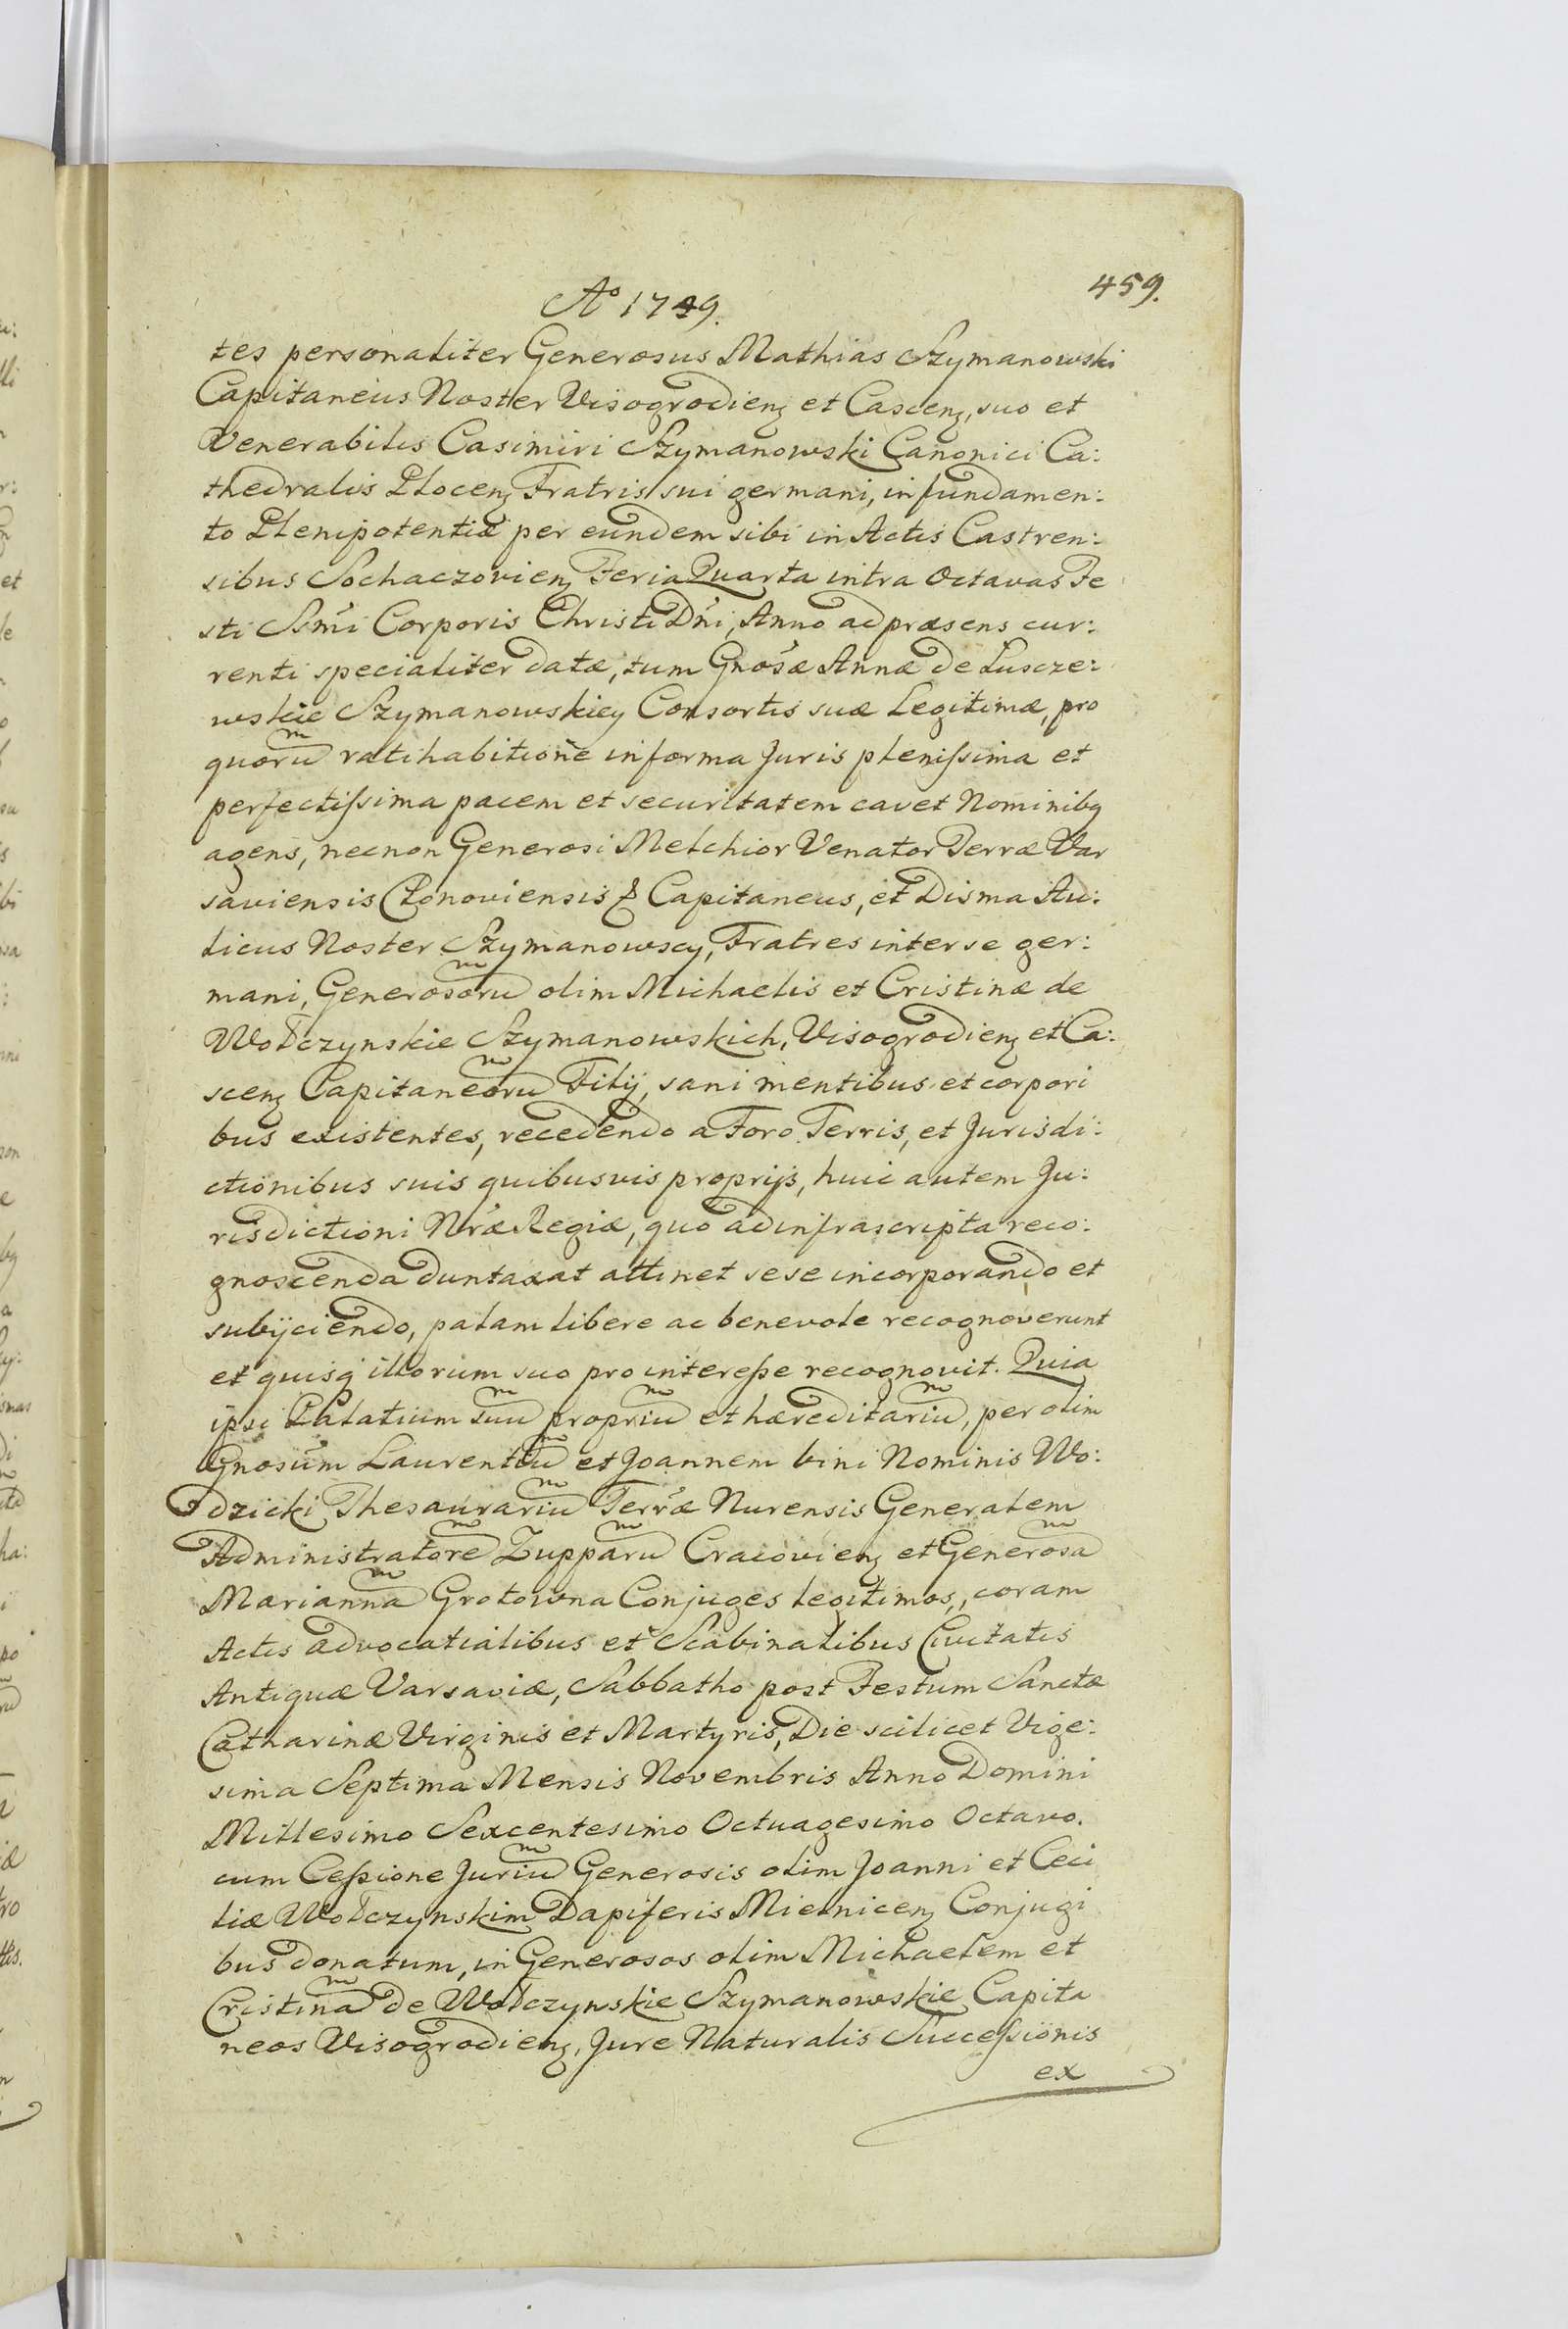 459.
Ao 1749.
tes personaliter Generosus Mathias Szymanowski
Capitaneus Noster Visogrodienȝ et Cascenȝ, suo et
Venerabilis Casimiri Szymanowski Canonici Ca:
thedralis Plocenȝ Fratris sui germani, in fundamen:
to Plenipotentiæ per eundem sibi in Actis Castren:
sibus Sochaczovienȝ Feria Quarta intra Octavas Fe
sti Ssm̃i Corporis Christi Dñi, Anno ad præsens cur:
renti specialiter datæ, tum Gnosæ Annæ de Luscze:
wskie Szymanowskiey Consortis suæ Legitimæ, pro
quorum ratihabitione in forma Juris plenissima et
perfectissima pacem et securitatem cavet Nominibq
agens, necnon Generosi Melchior Venator Terræ Var
saviensis Klonoviensis & Capitaneus, et Disma Au:
licus Noster Szymanowscy, Fratres inter se ger:
mani, Generosorum olim Michaelis et Cristinæ de
Wołczynskie Szymanowskich, Visogrodienȝ et Ca:
scenȝ Capitaneorum Filij, sani mentibus et corpori
bus existentes, recedendo a Foro Terris, et Jurisdi:
ctionibus suis quibusvis proprijs, huic autem Ju:
risdictioni Nræ Regiæ, quo ad infrascripta reco:
gnoscenda duntaxat attinet sese incorporando et
subijciendo, palam libere ac benevole recognoverunt
et quisq illorum suo pro interesse recognovit. Quia
ipsi Palatium suum proprium et hæreditarium, per olim
Gnosum Laurentium et Joannem bini Nominis Wo:
dzicki Thesaurarium Terræ Nurensis Generalem
Administratorem Zupparum Cracovienȝ et Generosam
Mariannam Grotowna Conjuges legitimos, coram
Actis advocatialibus et Scabinalibus Civitatis
Antiquæ Varsaviæ, Sabbatho post Festum Sanctæ
Catharinæ Virginis et Martyris, Die scilicet Vige:
sima Septima Mensis Novembris Anno Domini
Millesimo Sexcentesimo Octuagesimo Octavo.
cum Cessione Jurium Generosis olim Joanni et Ceci
liæ Wołczynskim Dapiferis Mielnicenȝ Conjugi
bus donatum, in Generosos olim Michaelem et
Cristinam de Wołczynskie Szymanowskie Capita
neos Visogrodienȝ, Jure Naturalis Successionis
ex